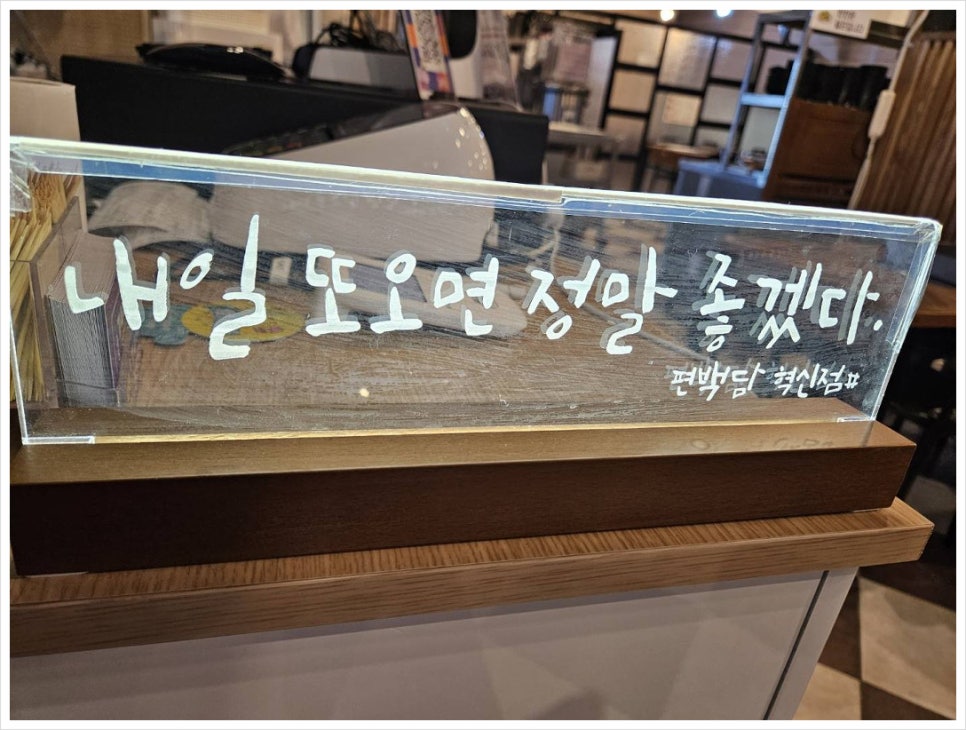 내일 또 오면 정말 좋겠다.
편백담 혁신점#